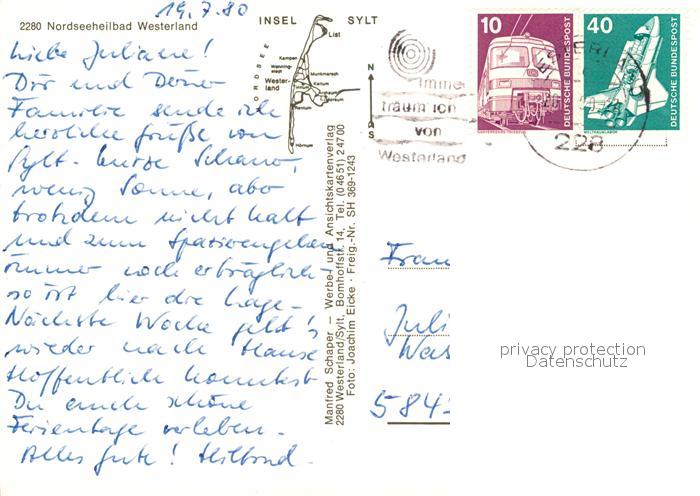 19.7.80
2280 Nordseeheilbad Westerland
Liebe Juliane!
Dir und Deiner
Familie sende ich
herzliche Grüße von
Sylt. kurze Schauer,
wenig Sonne, aber
trotzdem nicht kalt
und zum Spazierengehen
immer noch erträglich -
so ist hier die Lage.
Nächste Woche geht's
wieder nach Hause
Hoffentlich konntest
Du auch schöne
Ferientage verleben.
Alles Gute!
INSEL SYLT
NORDSEE
List
Kampen
Wenningstedt
Westerland
Munkmarsch
Keitum
Hörnum
N
S
Manfred Schaper — Werbe- und Ansichtskartenverlag
2280 Westerland/Sylt, Bomhoffstr. 14, Tel. (04651) 24700
Foto: Joachim Eicke · Freig.-Nr. SH 369-1243
Immer
träum ich
von
Westerland
10
DEUTSCHE BUNDESPOST
40
DEUTSCHE BUNDESPOST
WELTRAUMLABOR
228
Frau
Juli
584
privacy protection
Datenschutz